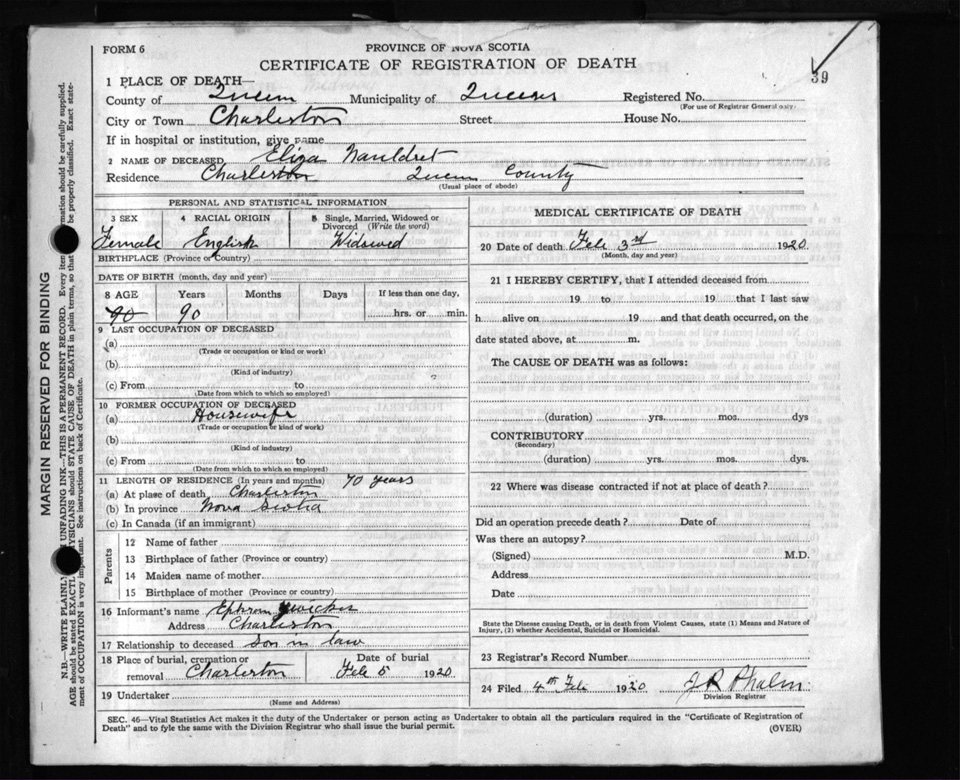 FORM 6
PROVINCE OF NOVA SCOTIA
CERTIFICATE OF REGISTRATION OF DEATH
39
1 PLACE OF DEATH—
County of Queen Municipality of Queens Registered No.
(For use of Registrar General only)
City or Town Charleston Street House No.
If in hospital or institution, give name
2 NAME OF DECEASED Eliza
Residence Charleston Queens County
(Usual place of abode)
PERSONAL AND STATISTICAL INFORMATION
3 SEX 4 RACIAL ORIGIN 5 Single, Married, Widowed or Divorced (Write the word)
Female English Widowed
BIRTHPLACE (Province or Country)
DATE OF BIRTH (month, day and year)
8 AGE Years Months Days If less than one day,
90 90 hrs. or min.
9 LAST OCCUPATION OF DECEASED
(a)
(Trade or occupation or kind or work)
(b)
(Kind of industry)
(c) From to
(Date from which to which so employed)
10 FORMER OCCUPATION OF DECEASED
(a) Housewife
(Trade or occupation or kind of work)
(b)
(Kind of industry)
(c) From to
(Date from which to which so employed)
11 LENGTH OF RESIDENCE (In years and months) 70 years
(a) At place of death Charleston
(b) In province Nova Scotia
(c) In Canada (if an immigrant)
Parents
12 Name of father
13 Birthplace of father (Province or country)
14 Maiden name of mother
15 Birthplace of mother (Province or country)
16 Informant's name Ephrom
Address Charleston
17 Relationship to deceased son in law
18 Place of burial, cremation or removal Charleston
Date of burial
Feb 5 1920
19 Undertaker
(Name and Address)
MEDICAL CERTIFICATE OF DEATH
20 Date of death Feb 3rd 1920
(Month, day and year)
21 I HEREBY CERTIFY, that I attended deceased from
19 to 19 that I last saw
h alive on 19 and that death occurred, on the
date stated above, at m.
The CAUSE OF DEATH was as follows:
(duration) yrs. mos. dys
CONTRIBUTORY
(Secondary)
(duration) yrs. mos. dys.
22 Where was disease contracted if not at place of death?
Did an operation precede death? Date of
Was there an autopsy?
(Signed) M.D.
Address
Date
State the Disease causing Death, or in death from Violent Causes, state (1) Means and Nature of
Injury, (2) whether Accidental, Suicidal or Homicidal.
23 Registrar's Record Number
24 Filed 4th Feb 1920 J R
Division Registrar
SEC. 46—Vital Statistics Act makes it the duty of the Undertaker or person acting as Undertaker to obtain all the particulars required in the "Certificate of Registration of
Death" and to fyle the same with the Division Registrar who shall issue the burial permit.
(OVER)
MARGIN RESERVED FOR BINDING
N.B.—WRITE PLAINLY UNFADING INK—THIS IS A PERMANENT RECORD. Every item mation should be carefully supplied.
AGE should be stated EXACTL YSICIANS should STATE CAUSE OF DEATH in plain terms, so that be properly classified. Exact state-
ment of OCCUPATION is very important. See instructions on back of Certificate.